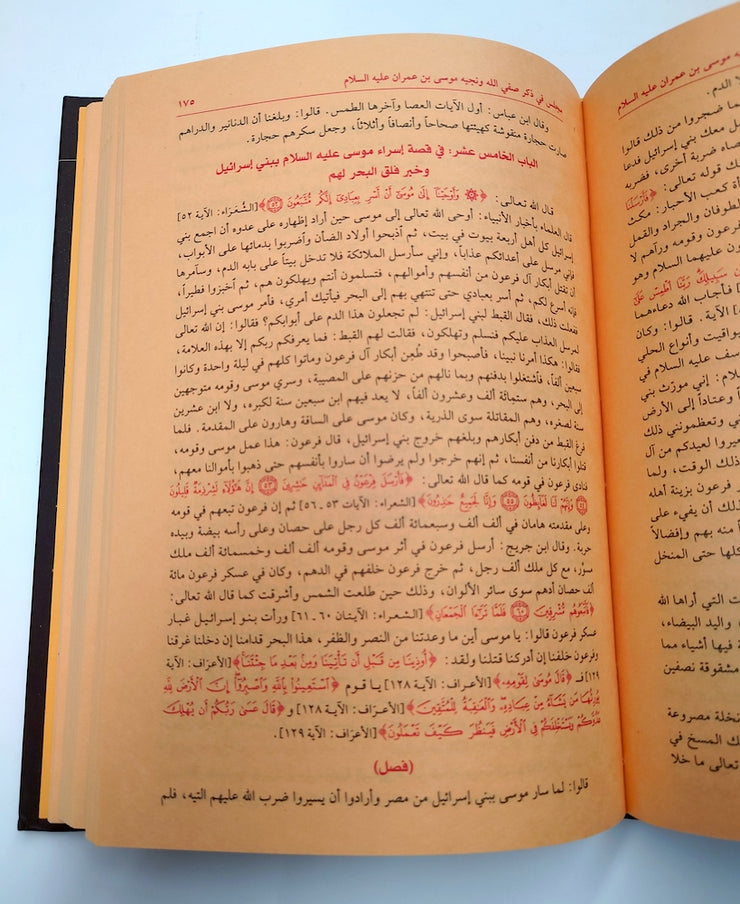 مجلس في ذكر صفي الله ونجيه موسى بن عمران عليه السلام
١٧٥
وقال ابن عباس: أول الآيات العصا وآخرها الطمس. قالوا: وبلغنا أن الدنانير والدراهم
صارت حجارة منقوشة كهيئتها صحاحاً وأنصافاً وأثلاثاً، وجعل سكرهم حجارة.
الباب الخامس عشر: في قصة إسراء موسى عليه السلام ببني إسرائيل
وخبر فلق البحر لهم
قال الله تعالى: ﴿۞ وَأَوْحَيْنَا إِلَىٰ مُوسَىٰ أَنْ أَسْرِ بِعِبَادِي إِنَّكُم مُّتَّبَعُونَ ۝٥٢﴾ [الشُّعَرَاء: الآية ٥٢]
قال العلماء بأخبار الأنبياء: أوحى الله تعالى إلى موسى حين أراد إظهاره على عدوه أن اجمع بني
إسرائيل كل أهل أربعة بيوت في بيت، ثم أذبحوا أولاد الضأن وأضربوا بدمائها على الأبواب،
فإني مرسل على أعدائكم عذاباً، وإني سأرسل الملائكة فلا تدخل بيتاً على بابه الدم، وسآمرها
أن تقتل أبكار آل فرعون من أنفسهم وأموالهم، فتسلمون أنتم ويهلكون هم، ثم أخبزوا فطيراً،
فإنه أسرع لكم، ثم أسر بعبادي حتى تنتهي بهم إلى البحر فيأتيك أمري، فأمر موسى بني إسرائيل
ففعلت ذلك، فقال القبط لبني إسرائيل: لم تجعلون هذا الدم على أبوابكم؟ فقالوا: إن الله تعالى
لمرسل العذاب عليكم فنسلم وتهلكون، فقالت لهم القبط: فما يعرفكم ربكم إلا بهذه العلامة،
فقالوا: هكذا أمرنا نبينا، فأصبحوا وقد طُعِن أبكار آل فرعون وماتوا كلهم في ليلة واحدة وكانوا
سبعين ألفاً، فأشتغلوا بدفنهم وبما نالهم من حزنهم على المصيبة، وسرى موسى وقومه متوجهين
إلى البحر، وهم ستمائة ألف وعشرون ألفاً، لا يعد فيهم ابن سبعين سنة لكبره، ولا ابن عشرين
سنة لصغره، وهم المقاتلة سوى الذرية، وكان موسى على الساقة وهارون على المقدمة. فلما
فرغ القبط من دفن أبكارهم وبلغهم خروج بني إسرائيل، قال فرعون: هذا عمل موسى وقومه،
قتلوا أبكارنا من أنفسنا، ثم إنهم خرجوا ولم يرضوا أن ساروا بأنفسهم حتى ذهبوا بأموالنا معهم،
فنادى فرعون في قومه كما قال الله تعالى: ﴿فَأَرْسَلَ فِرْعَوْنُ فِي الْمَدَائِنِ حَاشِرِينَ ۝٥٣ إِنَّ هَٰؤُلَاءِ لَشِرْذِمَةٌ قَلِيلُونَ
۝٥٤ وَإِنَّهُمْ لَنَا لَغَائِظُونَ ۝٥٥ وَإِنَّا لَجَمِيعٌ حَاذِرُونَ﴾ [الشعراء: الآيات ٥٣ـ٥٦] ثم إن فرعون تبعهم في قومه
وعلى مقدمته هامان في ألف ألف وسبعمائة ألف كل رجل على حصان وعلى رأسه بيضة وبيده
حربة. وقال ابن جريج: أرسل فرعون في أثر موسى وقومه ألف ألف وخمسمائة ألف ملك
مسوَّر، مع كل ملك ألف رجل، ثم خرج فرعون خلفهم في الدهم، وكان في عسكر فرعون مائة
ألف حصان أدهم سوى سائر الألوان، وذلك حين طلعت الشمس وأشرقت كما قال الله تعالى:
﴿فَأَتْبَعُوهُم مُّشْرِقِينَ ۝٦٠ فَلَمَّا تَرَاءَا الْجَمْعَانِ﴾ [الشعراء: الآيتان ٦٠ـ٦١] ورأت بنو إسرائيل غبار
عسكر فرعون قالوا: يا موسى أين ما وعدتنا من النصر والظفر، هذا البحر قدامنا إن دخلنا غرقنا
وفرعون خلفنا إن أدركنا قتلنا ولقد: ﴿أُوذِينَا مِن قَبْلِ أَن تَأْتِيَنَا وَمِن بَعْدِ مَا جِئْتَنَا﴾ [الأعراف: الآية
١٢٩] فـ ﴿قَالَ مُوسَىٰ لِقَوْمِهِ﴾ [الأعراف: الآية ١٢٨] يا قوم ﴿اسْتَعِينُوا بِاللَّهِ وَاصْبِرُوا إِنَّ الْأَرْضَ لِلَّهِ
يُورِثُهَا مَن يَشَاءُ مِنْ عِبَادِهِ وَالْعَاقِبَةُ لِلْمُتَّقِينَ﴾ [الأعراف: الآية ١٢٨] و ﴿قَالَ عَسَىٰ رَبُّكُمْ أَن يُهْلِكَ
عَدُوَّكُمْ وَيَسْتَخْلِفَكُمْ فِي الْأَرْضِ فَيَنظُرَ كَيْفَ تَعْمَلُونَ﴾ [الأعراف: الآية ١٢٩].
(فصل)
قالوا: لما سار موسى ببني إسرائيل من مصر وأرادوا أن يسيروا ضرب الله عليهم التيه، فلم
موسى بن عمران عليه السلام
الدم.
ضجروا من ذلك قالوا
معك بني إسرائيل فدعا
ضربة أخرى، فضربه
قوله تعالى: ﴿فَأَرْسَلْنَا
كعب الأحبار: مكث
الطوفان والجراد والقمل
فرعون وقومه ورآهم لا
عليهما السلام وهو
سَبِيلِكَ رَبَّنَا اطْمِسْ عَلَىٰ
فأجاب الله دعاءهما
الآية. قالوا: وكان
وأنواع الحلي
عليه السلام في
إني مورّث بني
وعتاداً إلى الأرض
وتعظمونني ذلك
لعيدكم من آل
الوقت، ولما
فرعون بزينة أهله
أن يفيء على
منه بهم وإفضالاً
كلها حتى المنخل
التي أراها الله
واليد البيضاء،
فيها أشياء مما
مشقوقة نصفين
مصروعة
المسخ في
تعالى ما خلا